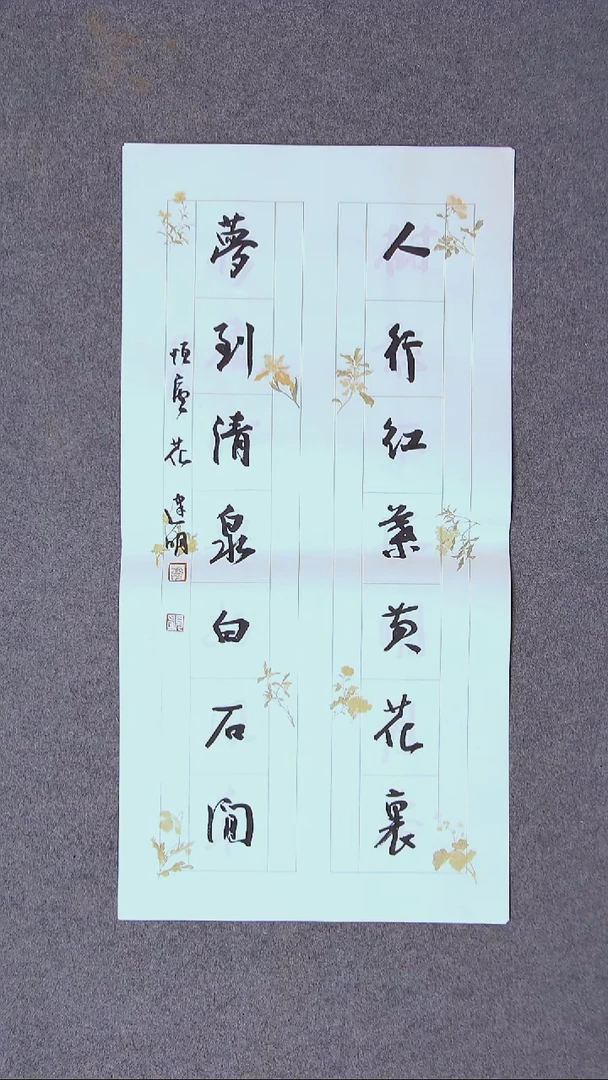 人行红葉黄花裏
夢到清泉白石間
恒廬 花 建明